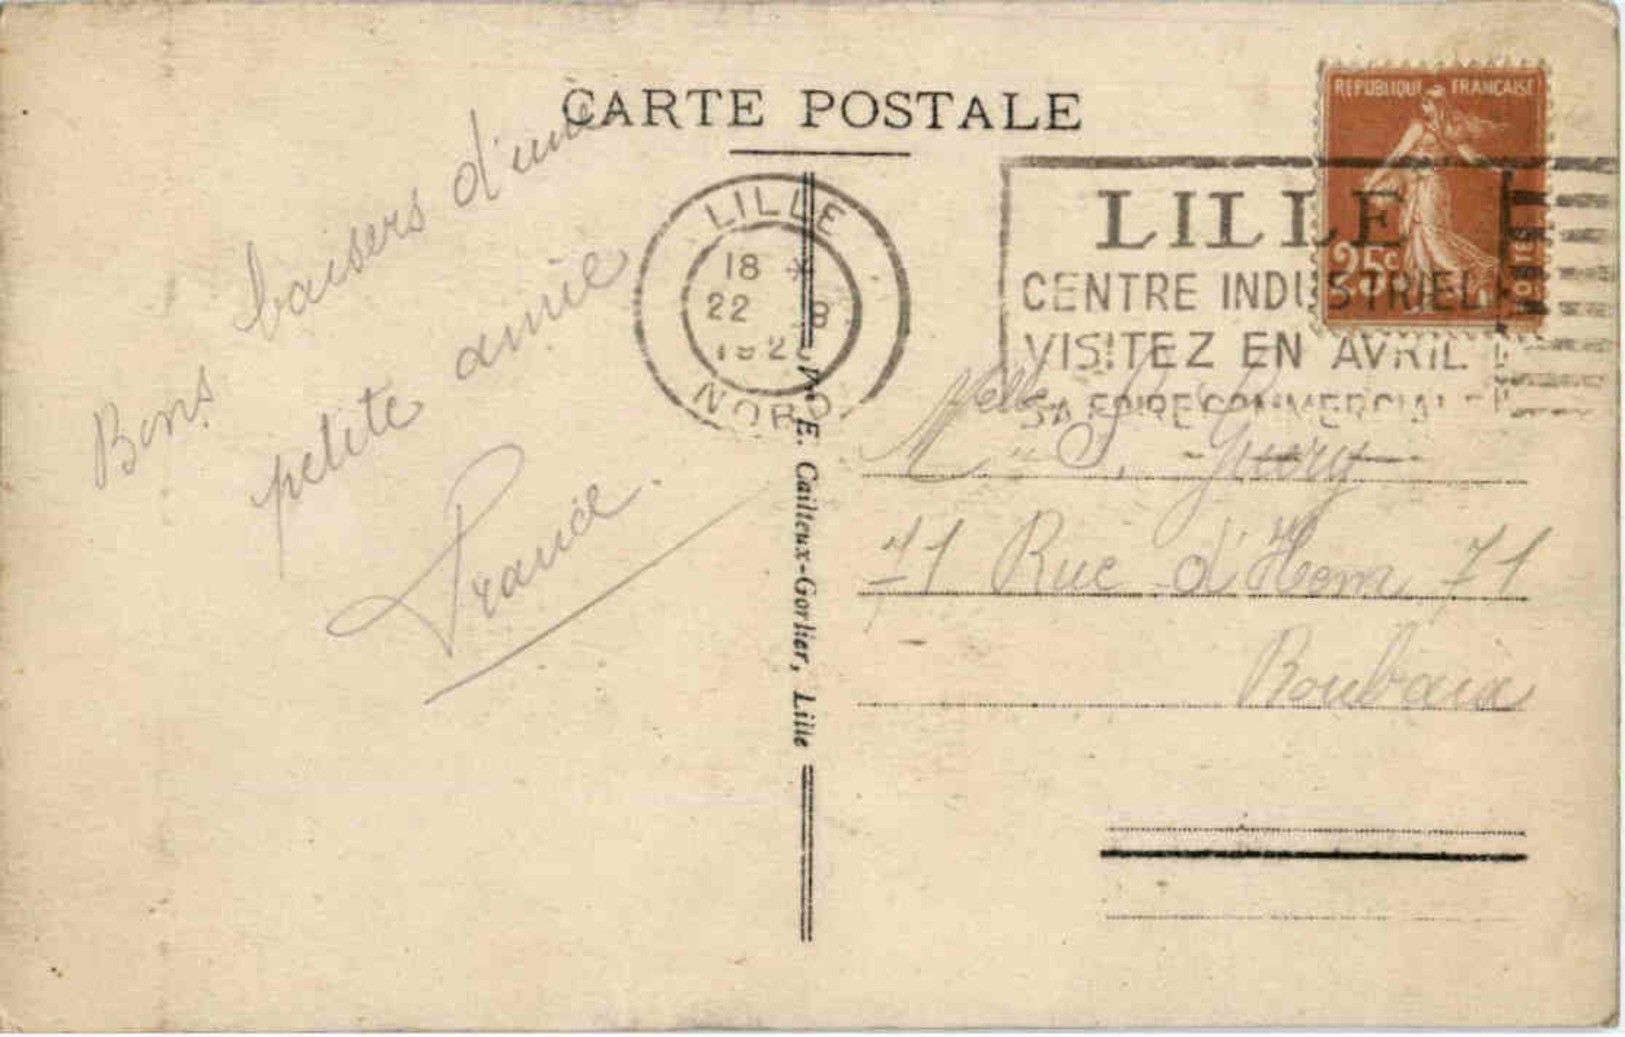 CARTE POSTALE
REPUBLIQUE FRANCAISE
25c
POSTES
LILLE
18 *
22 8
192
NORD
LILLE
CENTRE INDUSTRIEL
VISITEZ EN AVRIL
SA FOIRE COMMERCIALE
Bons baisers d'une
petite amie
France.
E. Cailteux-Gorlier, Lille
Melle S.
71 Rue d'Hem 71
Roubaix